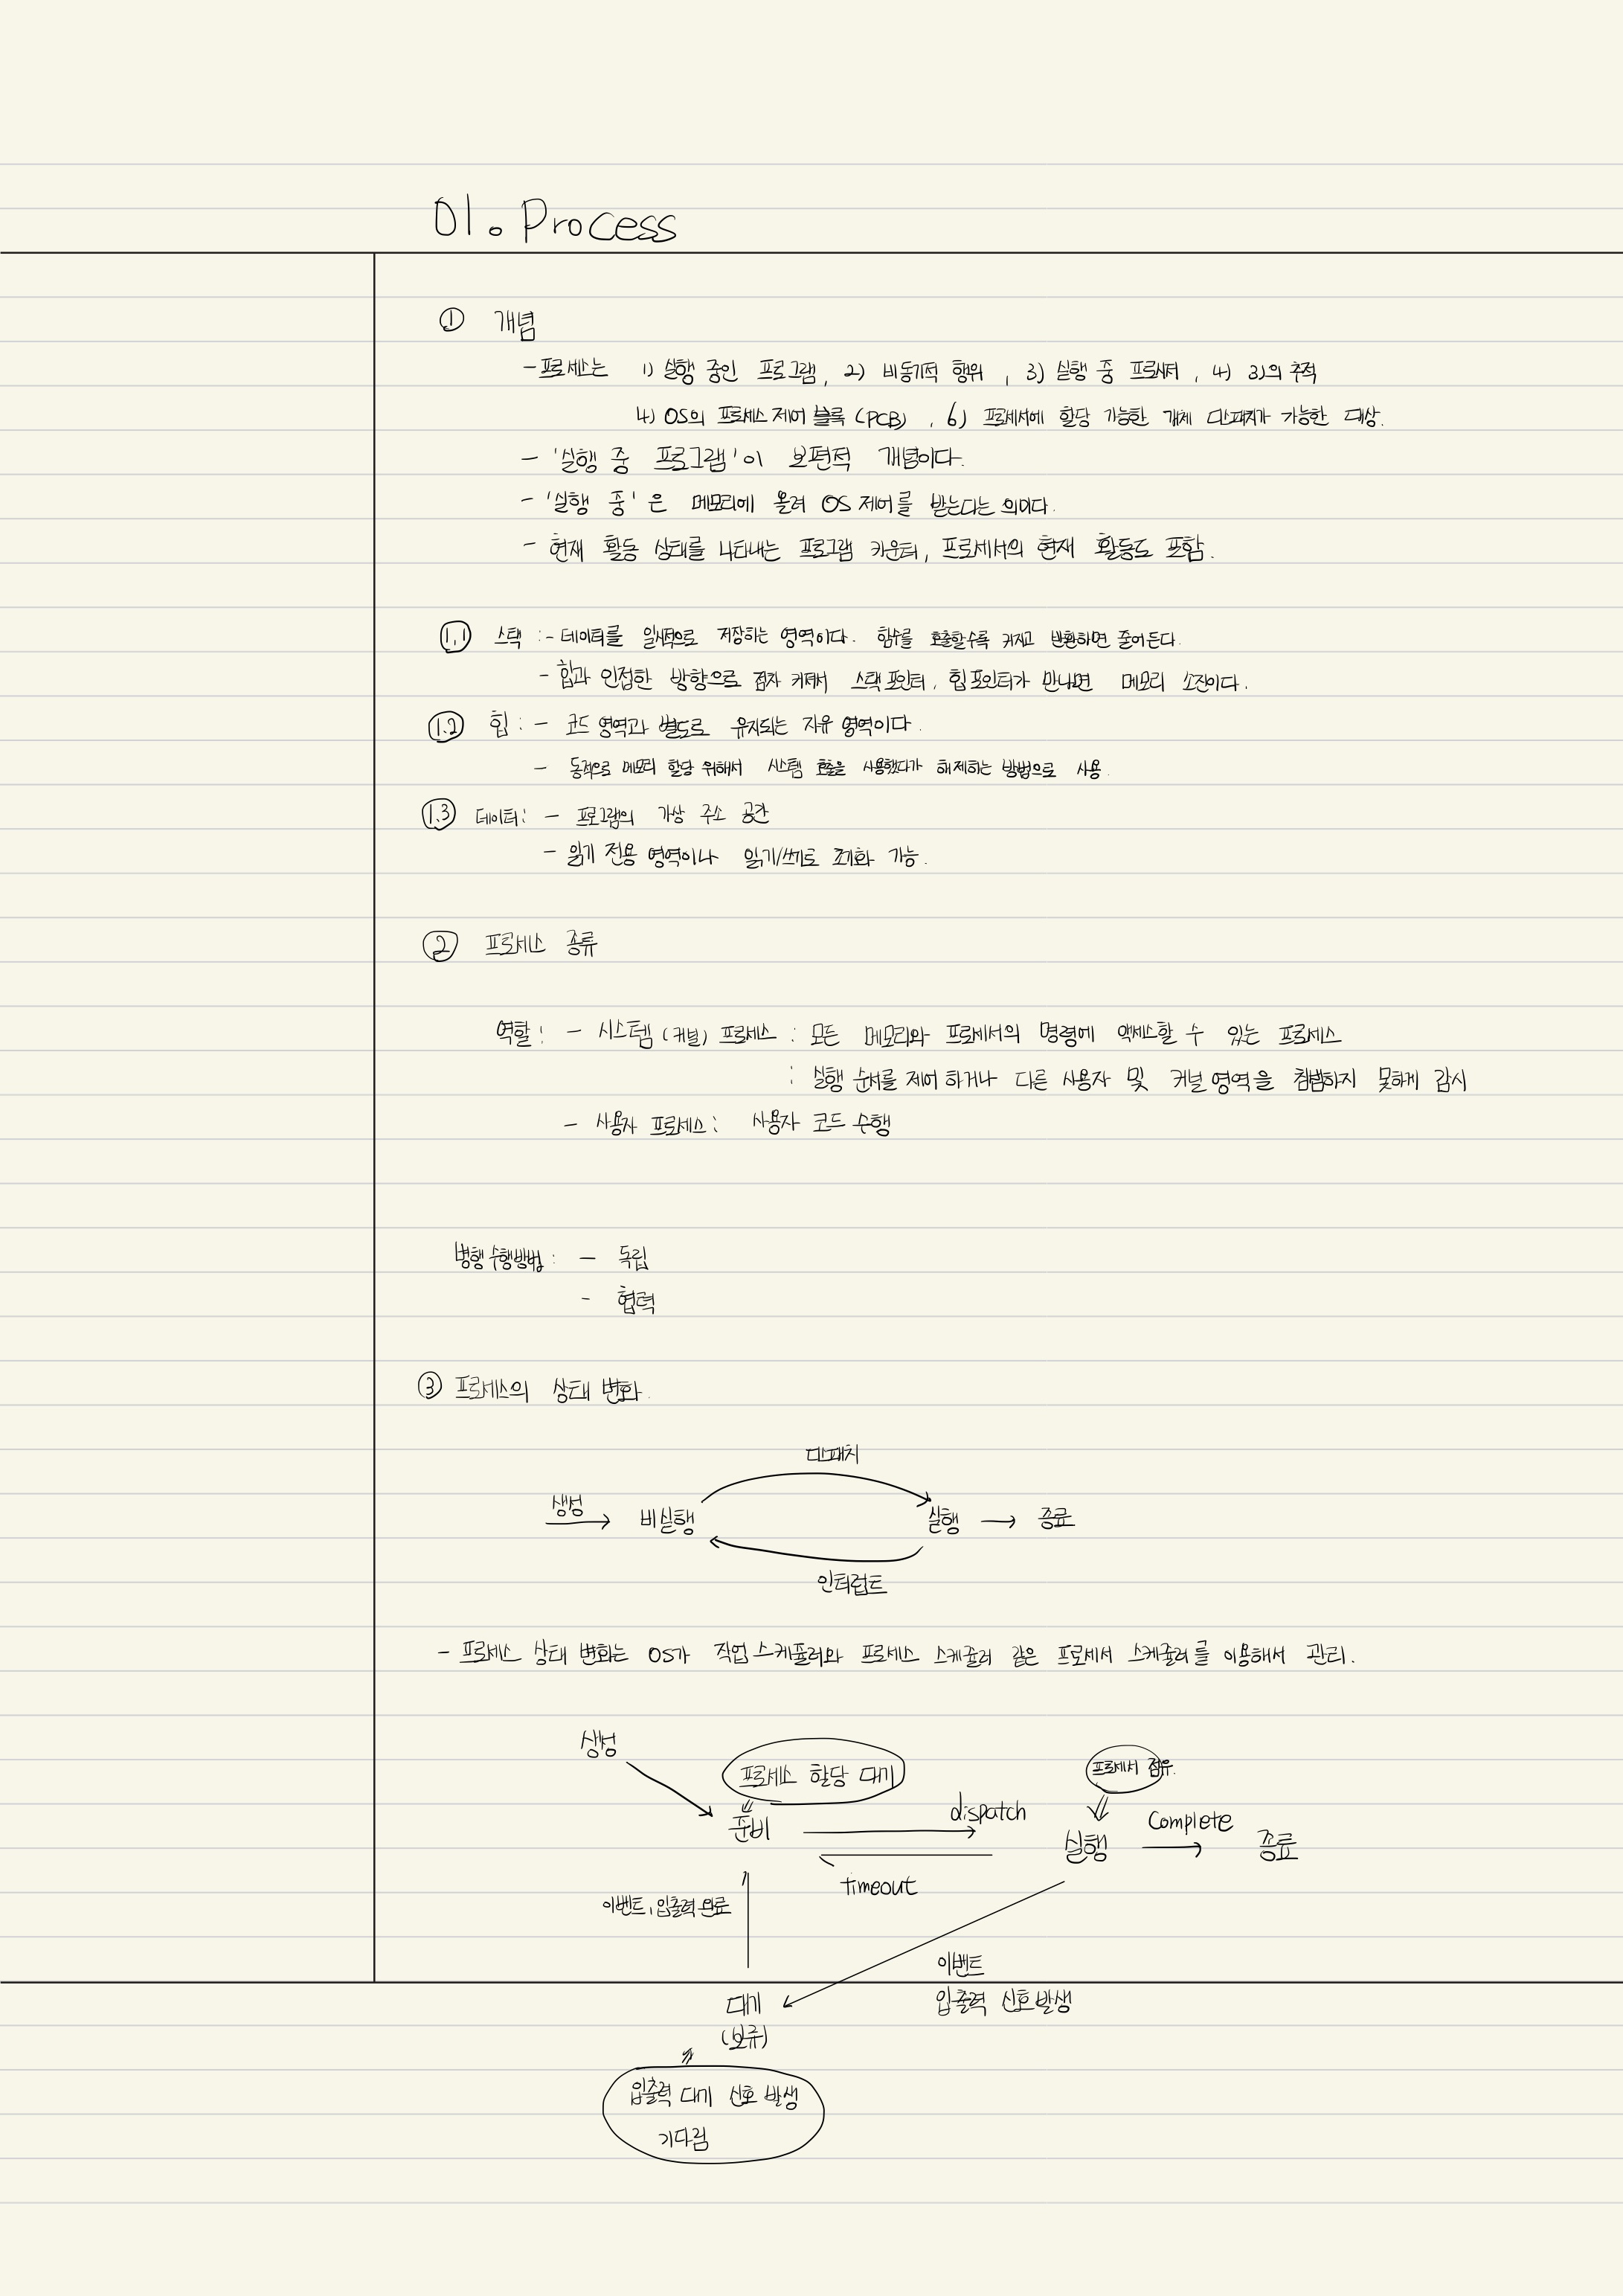 01. Process
① 개념
- 프로세스는 1) 실행 중인 프로그램, 2) 비동기적 행위, 3) 실행 중 프로시저, 4) 3)의 추적
4) OS의 프로세스 제어 블록 (PCB), 6) 프로세서에 할당 가능한 개체 디스패치가 가능한 대상.
- '실행 중 프로그램'이 보편적 개념이다.
- '실행 중'은 메모리에 올려 OS 제어를 받는다는 의미다.
- 현재 활동 상태를 나타내는 프로그램 카운터, 프로세서의 현재 활동도 포함.
1.1 스택 : - 데이터를 일시적으로 저장하는 영역이다. 함수를 호출할수록 커지고 반환하면 줄어든다.
- 힙과 인접한 방향으로 점차 커져서 스택포인터, 힙포인터가 만나면 메모리 소진이다.
1.2 힙 : - 코드 영역과 별도로 유지되는 자유 영역이다.
- 동적으로 메모리 할당 위해서 시스템 호출을 사용했다가 해제하는 방법으로 사용.
1.3 데이터: - 프로그램의 가상 주소 공간
- 읽기 전용 영역이나 읽기/쓰기로 초기화 가능.
② 프로세스 종류
역할: - 시스템 (커널) 프로세스 : 모든 메모리와 프로세서의 명령에 액세스할 수 있는 프로세스
: 실행 순서를 제어 하거나 다른 사용자 및 커널 영역을 침범하지 못하게 감시
- 사용자 프로세스: 사용자 코드 수행
병행 수행방법: - 독립
- 협력
③ 프로세스의 상태 변화.
디스패치
생성
비실행 실행 → 종료
인터럽트
- 프로세스 상태 변화는 OS가 작업 스케줄러와 프로세스 스케줄러 같은 프로세서 스케줄러를 이용해서 관리.
생성
프로세스 할당 대기 프로세서 점유.
준비 dispatch 실행 Complete 종료
timeout
이벤트, 입출력 완료
이벤트
입출력 신호발생
대기
(보류)
입출력 대기 신호 발생
기다림